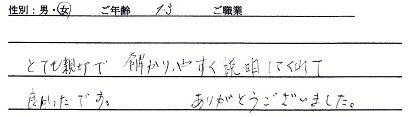 性別：男・女 ご年齢 13 ご職業
とても親切で 解かりやすく説明してくれて
良かったです。 ありがとうございました。